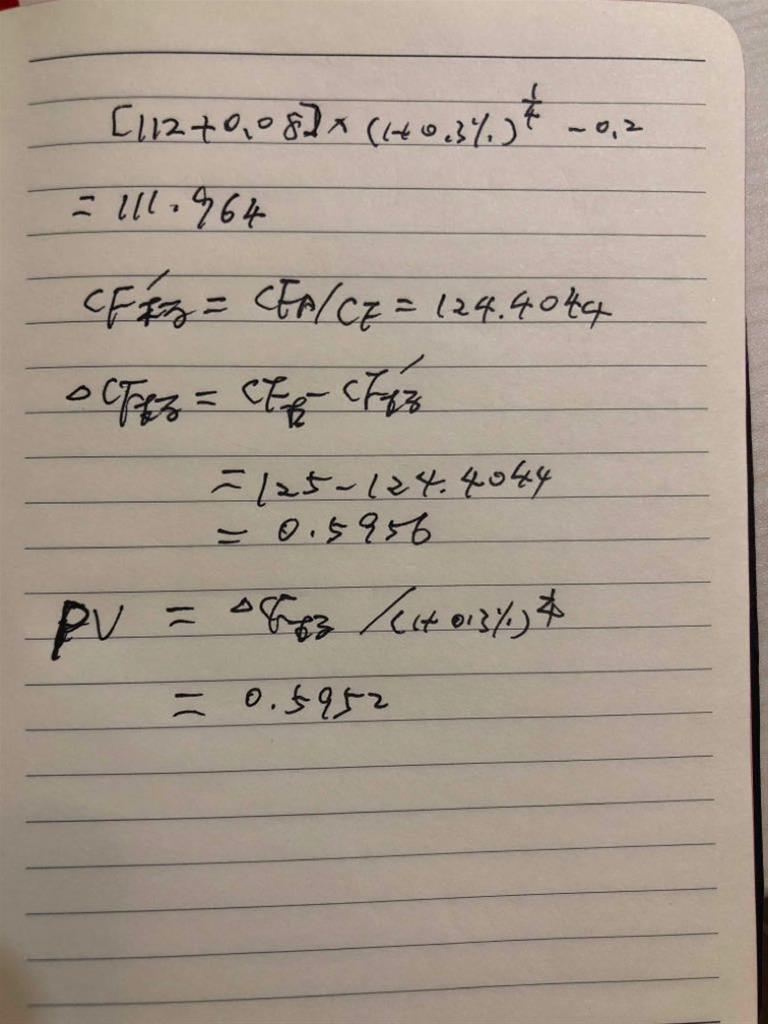 [112+0.08]×(1+0.3%)^{1/4} -0.2
= 111.964
CF' = CFA/CF = 124.4044
△CF = CF - CF'
= 125-124.4044
= 0.5956
PV = △CF /(1+0.3%)
= 0.5952